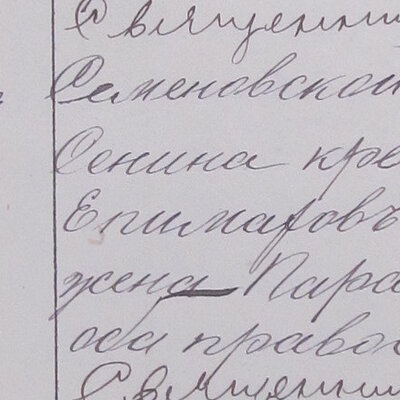 Священни
Семеновской
Сенина кре
Епимаровъ
жена Пара
оба правос
Священни